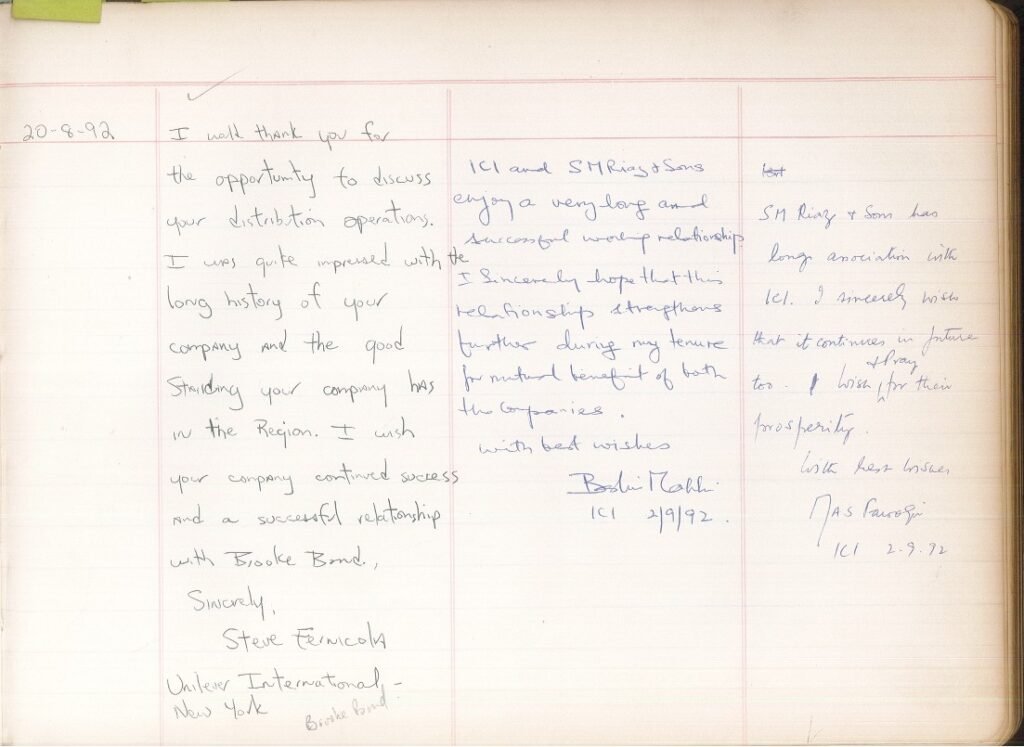 20-8-92
I would thank you for
the opportunity to discuss
your distribution operations.
I was quite impressed with the
long history of your
company and the good
Standing your company has
in the Region. I wish
your company continued success
and a successful relationship
with Brooke Bond.,
Sincrely,
Steve Fernicola
Unilever International, -
New York
Brooke Bond
ICI and SM Riaz & Sons
enjoy a very long and
successful working relationship
I Sincerely hope that this
relationship strengthens
further during my tenure
for mutual benefit of both
the Companies.
with best wishes
ICI 2/9/92.
SM Riaz & Sons has
long association with
ICI. I sincerely wish
that it continues in future
too. I wish & Pray for their
prosperity.
With best wishes
MAS Farooqi
ICI 2.9.92